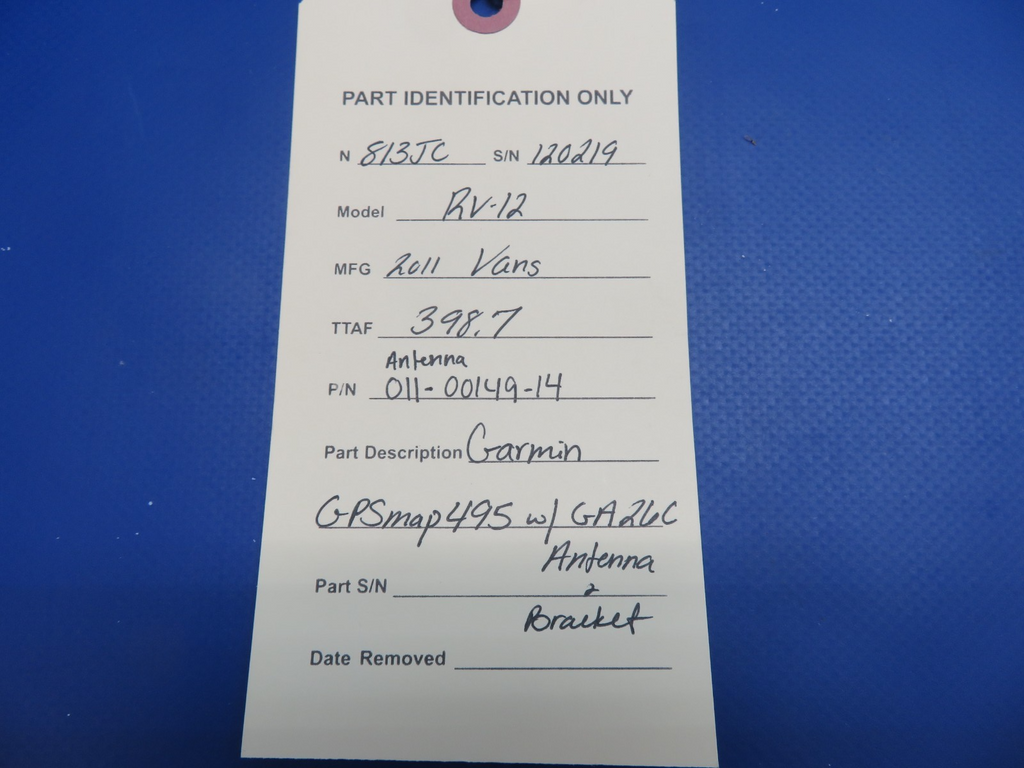 PART IDENTIFICATION ONLY
N 813JC S/N 120219
Model RV-12
MFG 2011 Vans
TTAF 398.7
Antenna
P/N 011-00149-14
Part Description Garmin
GPSmap 495 w/ GA26C
Antenna
Part S/N &
Bracket
Date Removed